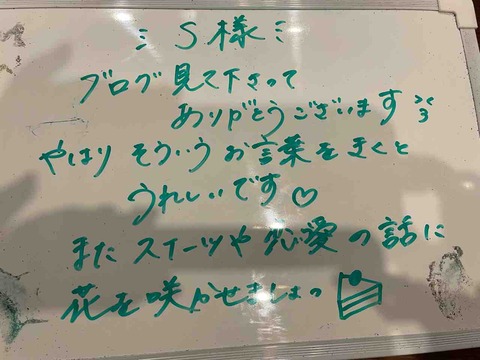 S様
ブログ見て下さって
ありがとうございます
やはり そういうお言葉をきくと
うれしいです♡
また スイーツや恋愛の話に
花を咲かせましょっ